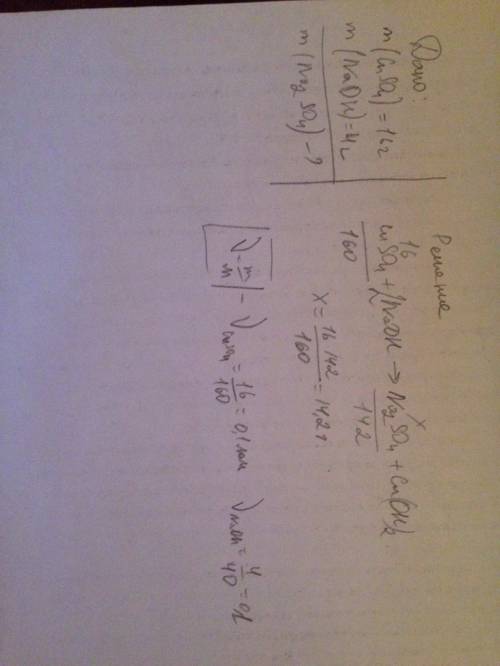 Дано:
m(CuSO4)=16г
m(NaOH)=4г
m(Na2SO4)-?
Решение
16 x
CuSO4+2NaOH→Na2SO4+Cu(OH)2
160 142
x=16 142/160=14,2г.
ν=m/M - νCuSO4=16/160=0,1моль νNaOH=4/40=0,1